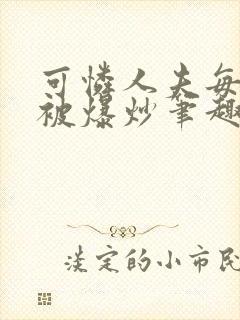 可怜人夫每
被爆炒笔趣
淡定的小市民